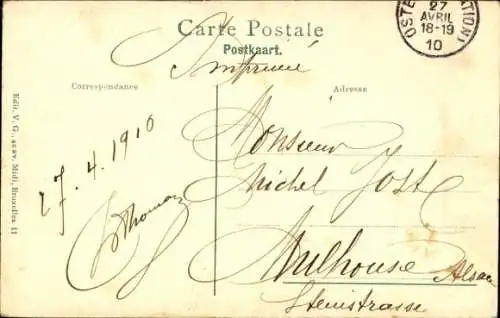 Carte Postale
Postkaart.
Imprimé
27
AVRIL
18-19
10
OSTE
(STATION)
Correspondance
Adresse
27.4.1910
Thomas
Monsieur
Michel Jost
Mulhouse Alsace
Steinstrasse
Edit. V. G., Midi, Bruxelles 11